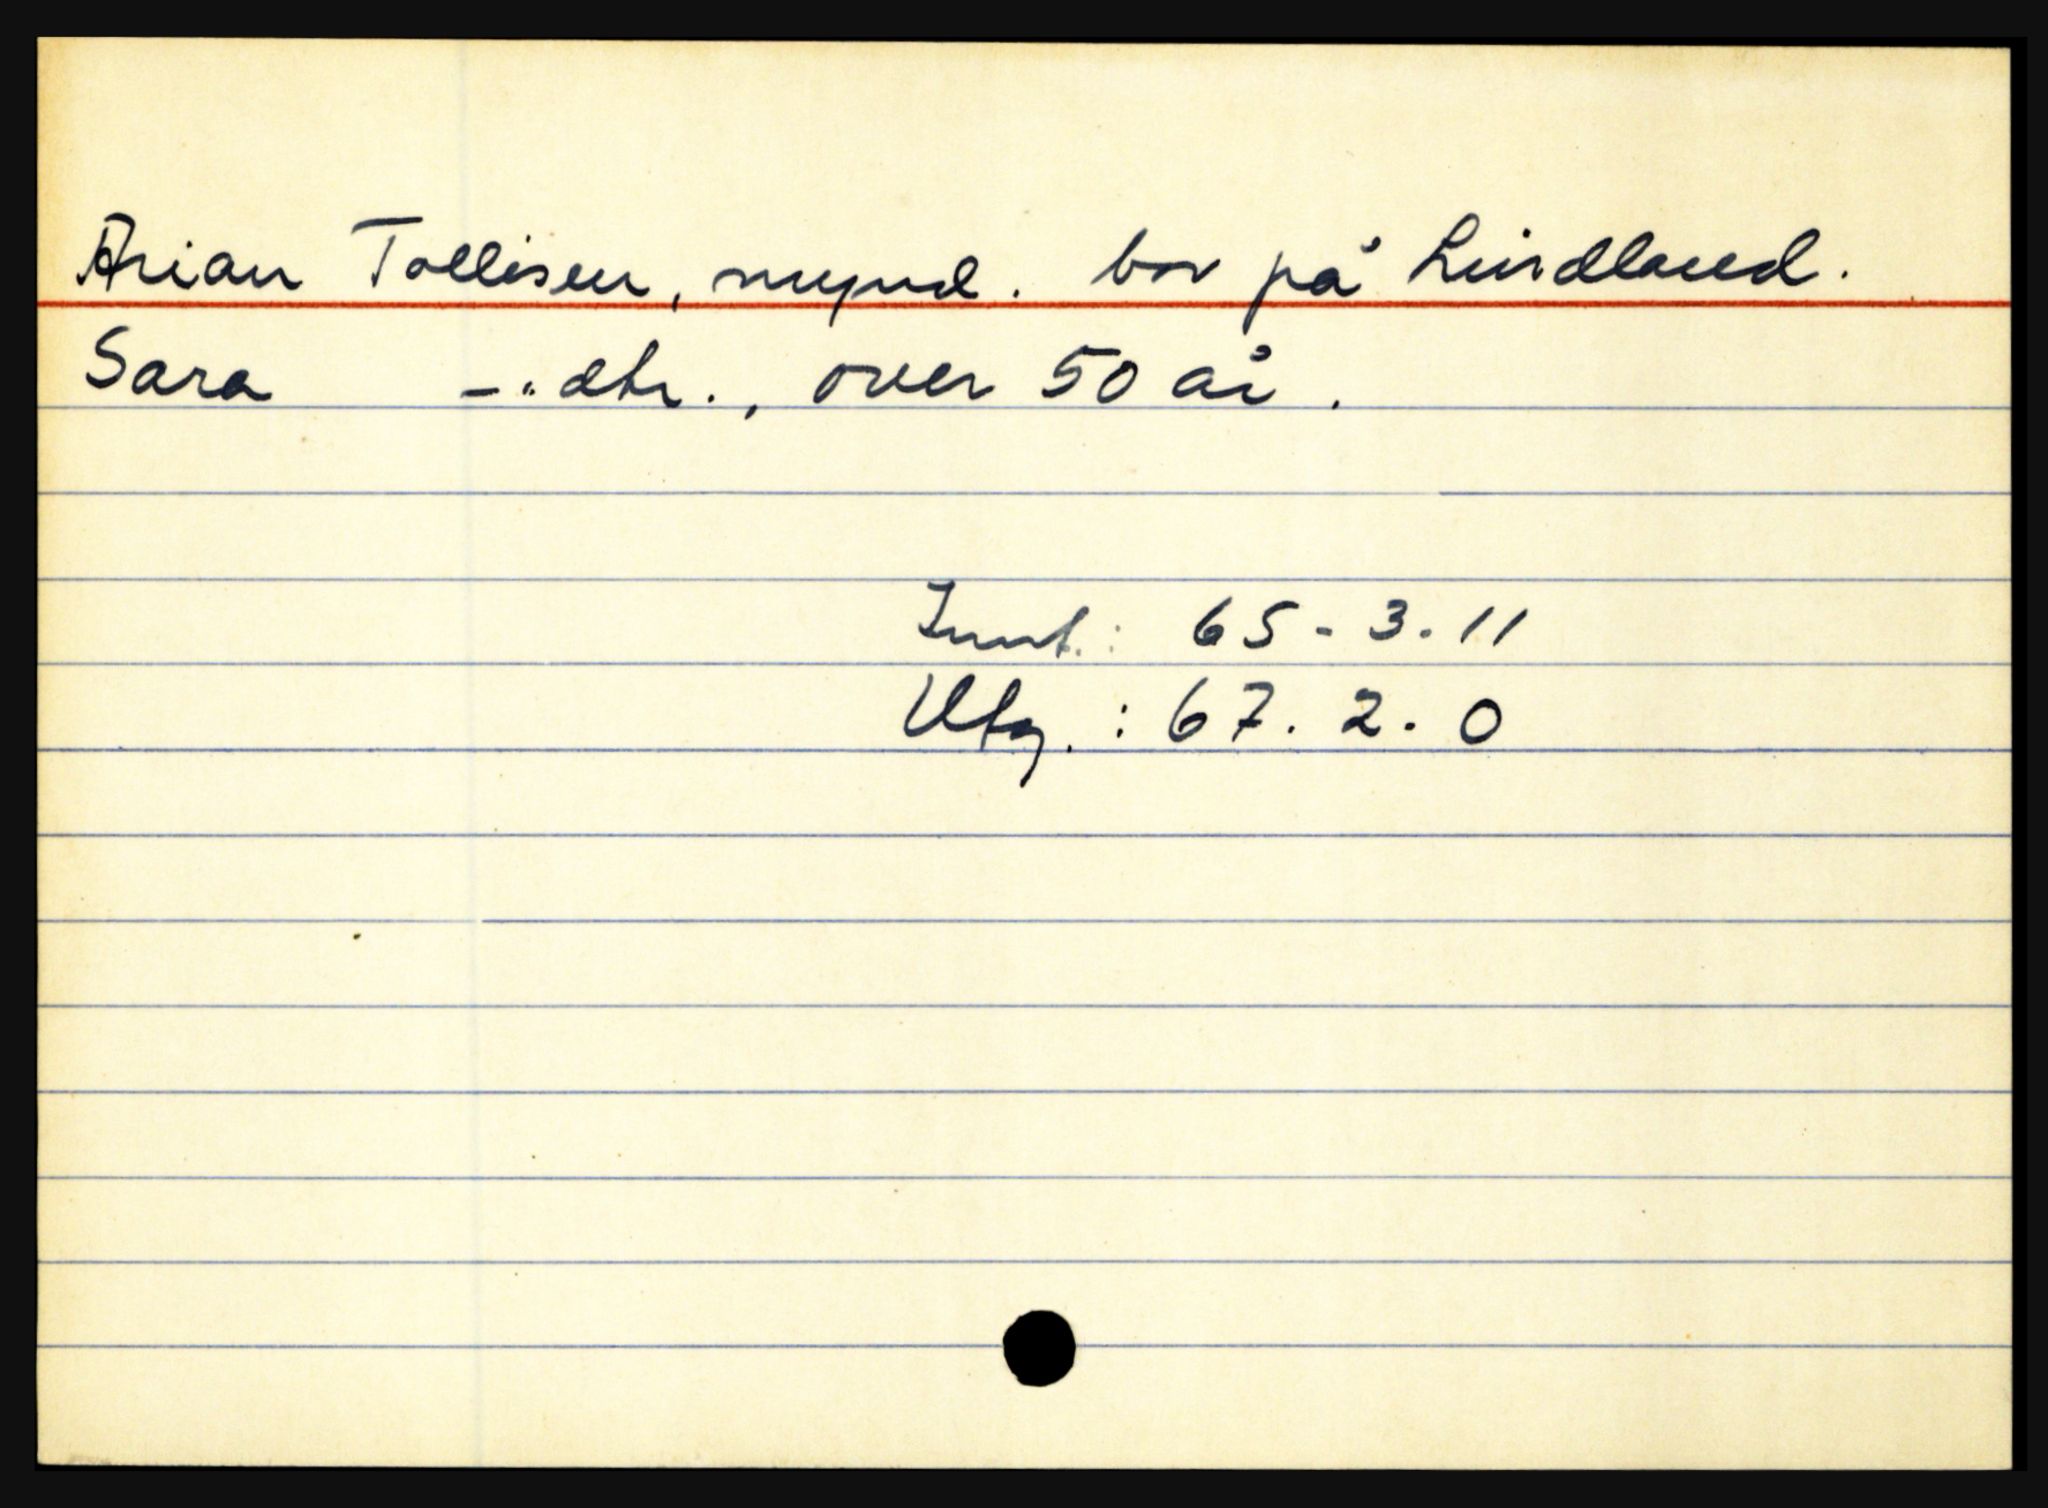 Arian Tollisen, mynd. bor på Lindland.
Sara -"- dtr., over 50 år.
Innt.: 65-3-11
Utg.: 67.2.0